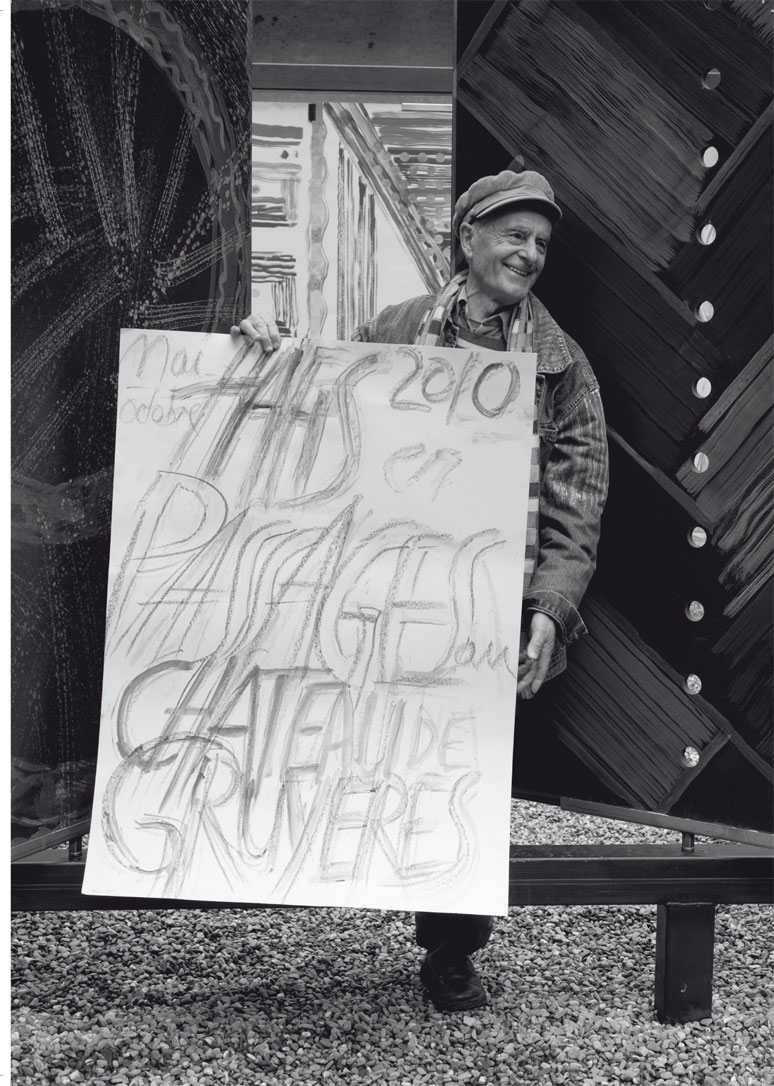 Mai- HAFIS 2010
octobre
en
PASSAGES au
CHATEAU DE
GRUYERES